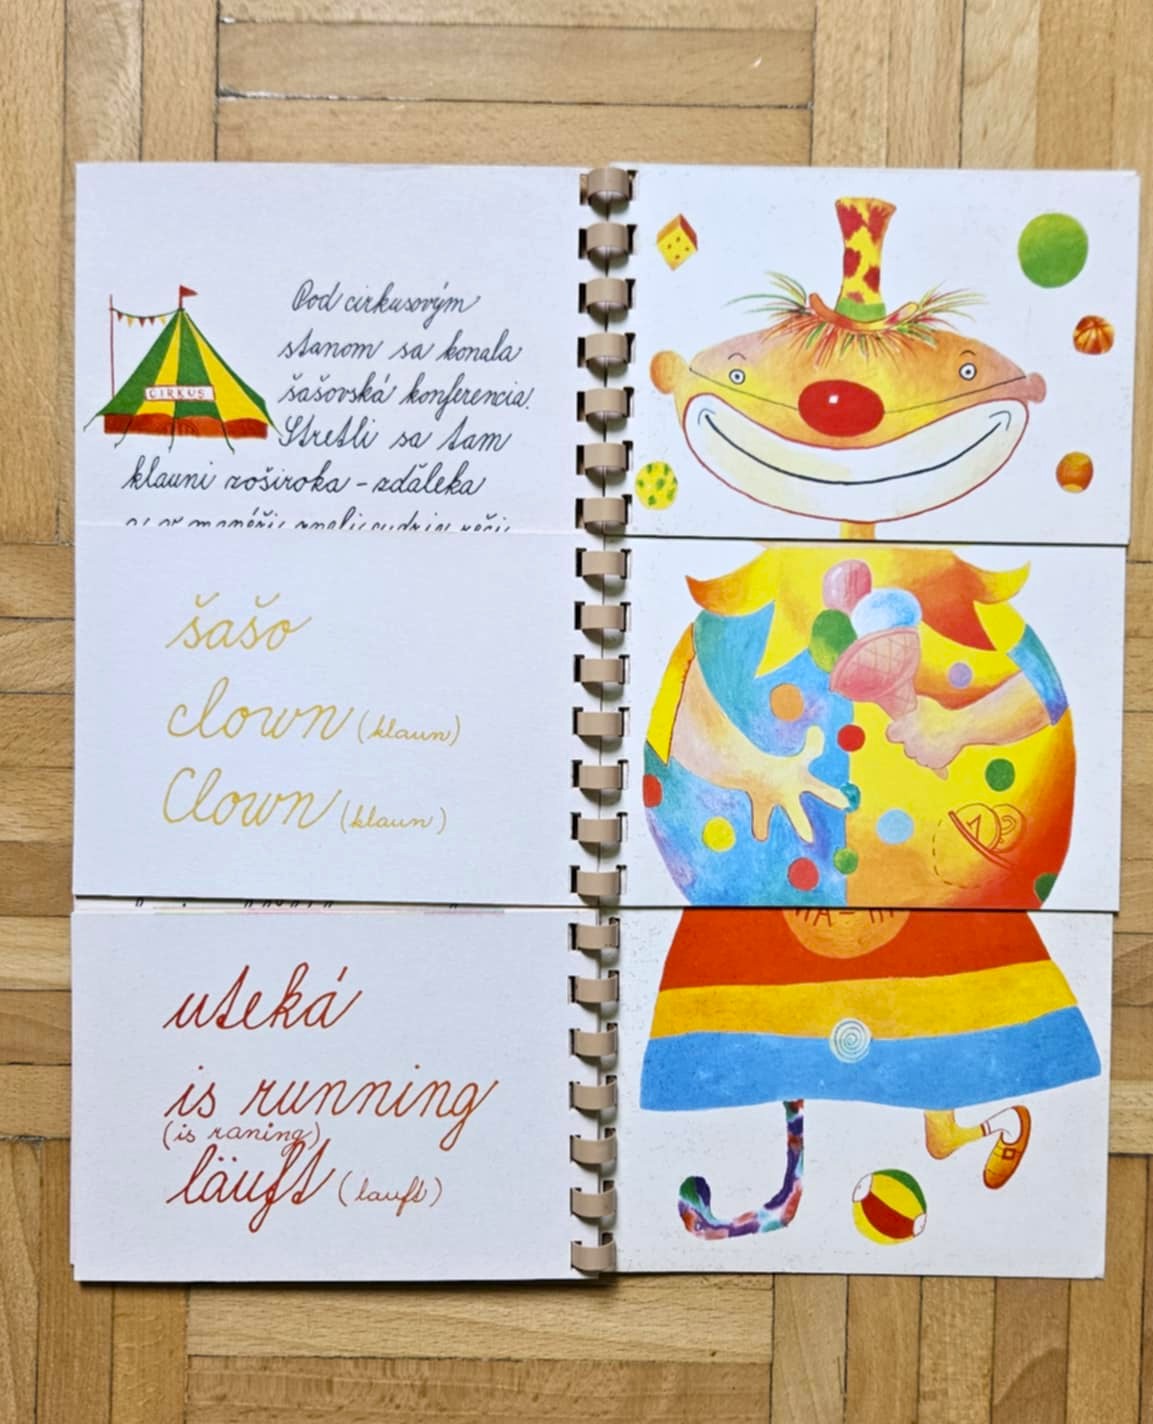 CIRKUS
Pod cirkusovým
stanom sa konala
šašovská konferencia.
Stretli sa tam
klauni zoširoka-zďaleka
šašo
clown (klaun)
Clown (klaun)
uteká
is running
(is raning)
läuft (lauft)